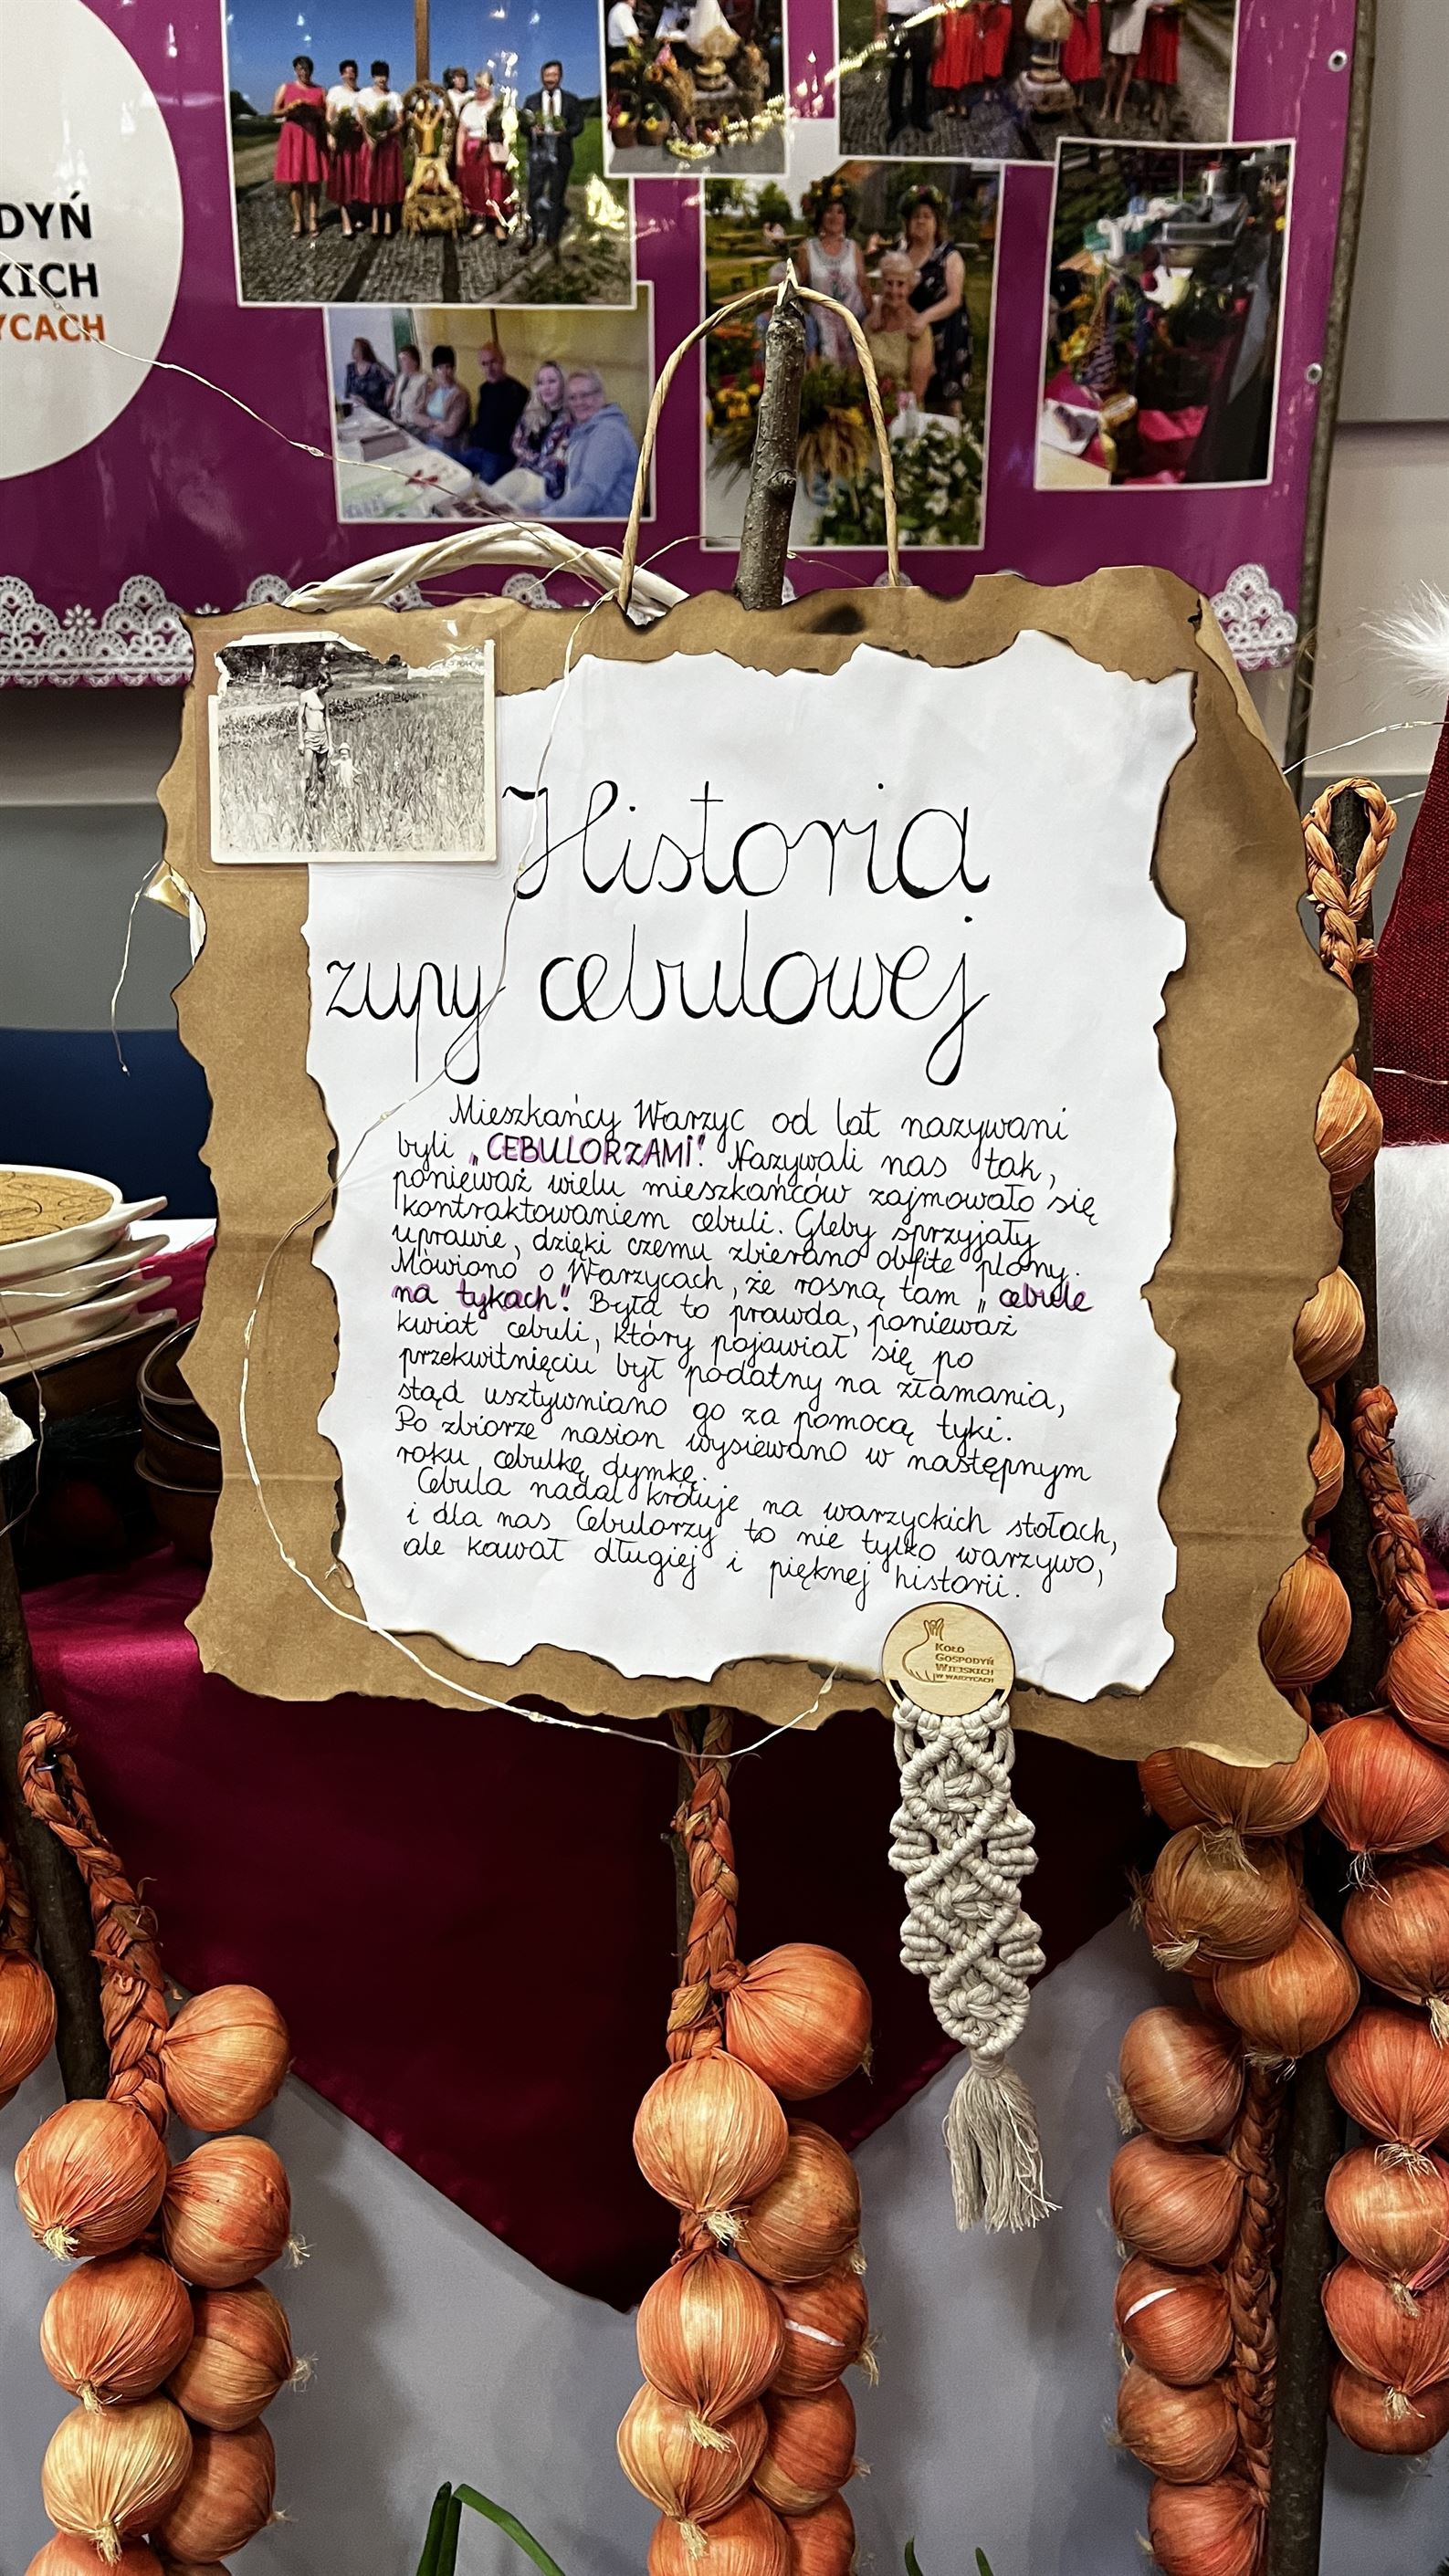 DYŃ
KICH
YCACH
Historia
zupy cebulowej
Mieszkańcy Warzyc od lat nazywani
byli „CEBULORZAMI". Nazywali nas tak,
ponieważ wielu mieszkańców zajmowało się
kontraktowaniem cebuli. Gleby sprzyjały
uprawie, dzięki czemu zbierano obfite plony.
Mówiono o Warzycach, że rosną tam „cebule
na tykach". Była to prawda, ponieważ
kwiat cebuli, który pojawiał się po
przekwitnięciu był podatny na złamania,
stąd usztywniano go za pomocą tyki.
Po zbiorze nasion wysiewano w następnym
roku cebulkę dymkę.
Cebula nadal króluje na warzyckich stołach,
i dla nas Cebulorzy to nie tylko warzywo,
ale kawał długiej i pięknej historii.
KOŁO
GOSPODYŃ
WIEJSKICH
W WARZYCACH